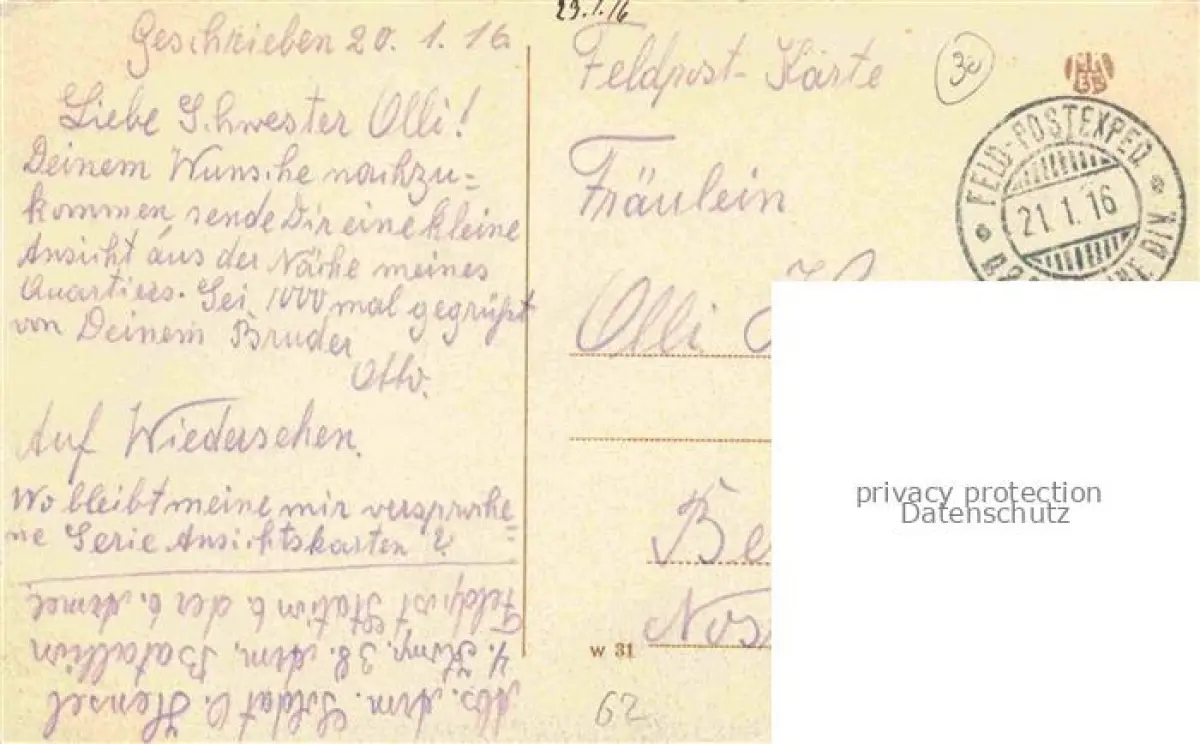 29.1.16
Geschrieben 20. 1. 16
Liebe Schwester Olli!
Deinem Wunsche nachzu=
kommen, sende Dir eine kleine
Ansicht aus der Nähe meines
Quartiers. Sei 1000 mal gegrüßt
von Deinem Bruder
Otto.
Auf Wiedersehen.
Wo bleibt meine mir versproche=
ne Serie Ansichtskarten?
Abs. Arm. Soldat O. Hensel
4. Komp. 38. Arm. Batallion
Feldpost Station 6. der 6. Armee
Feldpost-Karte
30
Fräulein
Olli
Be
Nos
W 31
62
FELD-POSTEXPED.
21.1.16
DIV.
privacy protection
Datenschutz